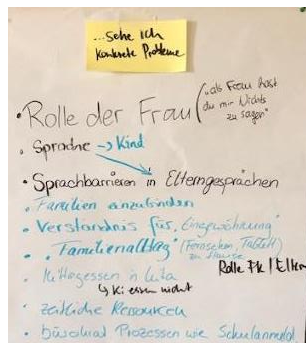 ...sehe ich
konkrete Probleme
• Rolle der Frau ("als Frau hast
du mir Nichts
zu sagen"
• Sprache → Kind
• Sprachbarrieren in Elterngesprächen
• Familien anzubinden
• Verständnis für "Eingewöhnung"
• "Familienalltag" (Fernsehen, Tablett)
zu Hause
Rolle Fk / Eltern
• Mittagessen in Kita
↳ Ki essen nicht
• zeitliche Resourcen
• bürokrat. Prozessen wie Schulanmeld